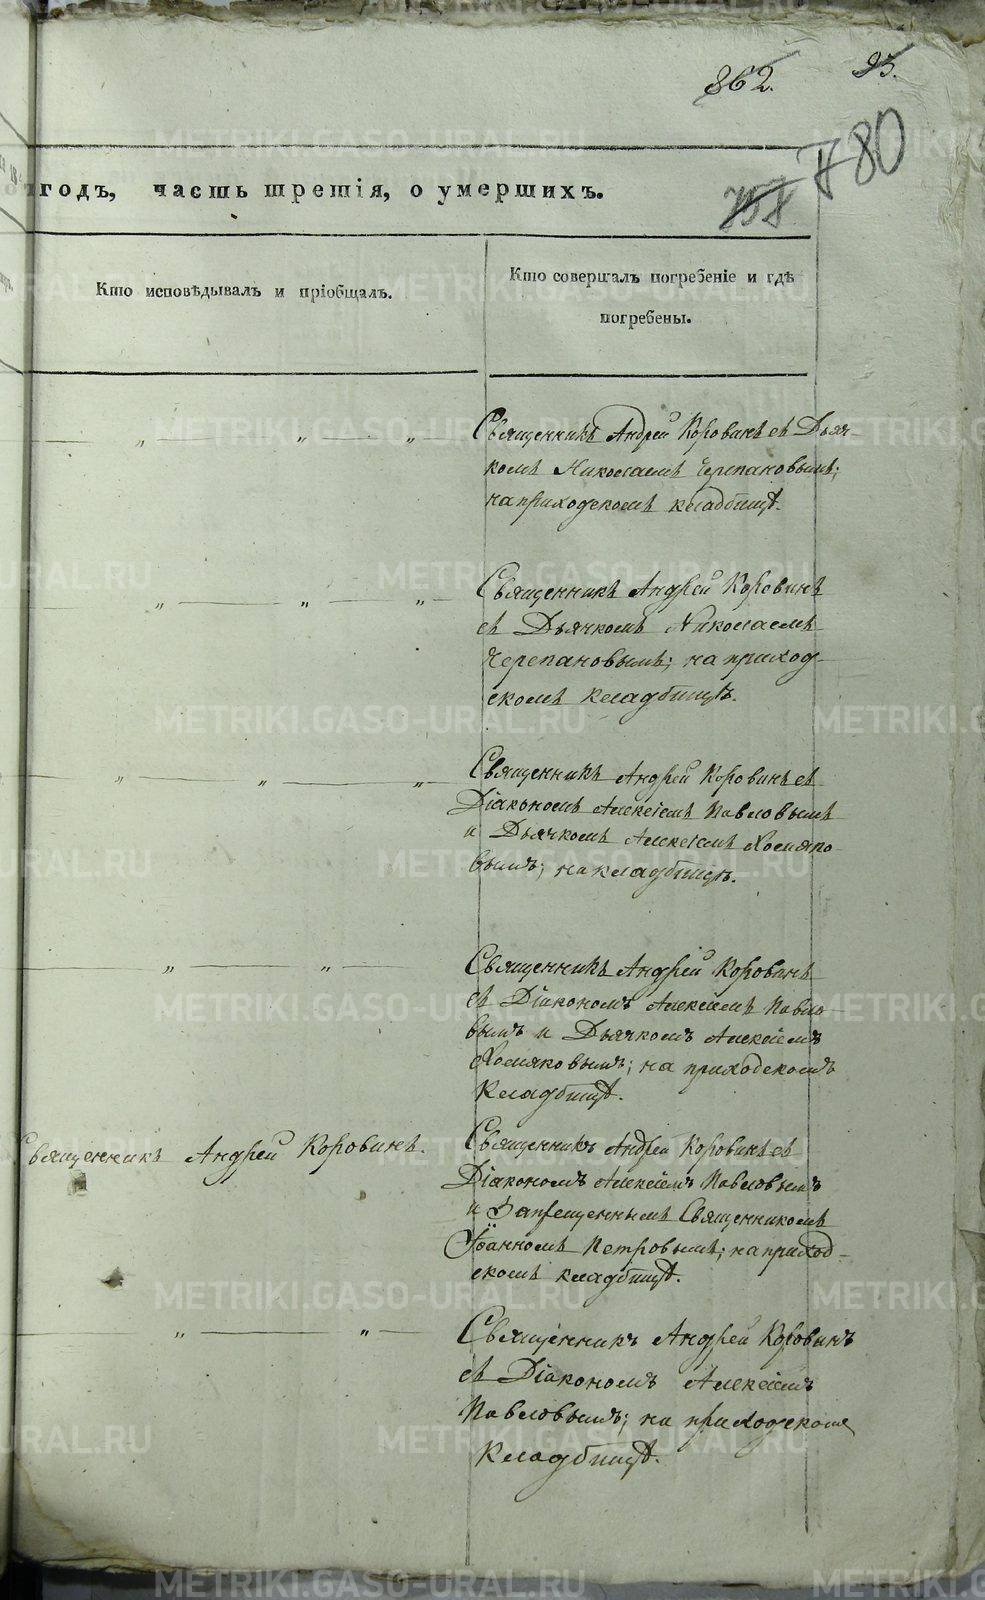 862. 93.
780
757
годъ, часть третія, о умершихъ.
Кто исповѣдывалъ и пріобщалъ.
Кто совершалъ погребеніе и гдѣ
погребены.
„ „ „
Священникъ Андрей Коровинъ съ Дьяч-
комъ Николаемъ Черепановымъ;
на приходскомъ кладбищѣ.
„ „ „
Священникъ Андрей Коровинъ
съ Дьячкомъ Николаемъ
Черепановымъ; на приход-
скомъ кладбищѣ.
„ „ „
Священникъ Андрей Коровинъ съ
Діакономъ Алексіемъ Павловымъ
и Дьячкомъ Алексіемъ Хомяко-
вымъ; на кладбищѣ.
„ „
Священникъ Андрей Коровинъ
съ Діакономъ Алексіемъ Павло-
вымъ и Дьячкомъ Алексіемъ
Хомяковымъ; на приходскомъ
кладбищѣ.
Священникъ Андрей Коровинъ.
Священникъ Андрей Коровинъ съ
Діакономъ Алексіемъ Павловымъ
и Запрещеннымъ Священникомъ
Іоанномъ Петровымъ; на приход-
скомъ кладбищѣ.
„ „
Священникъ Андрей Коровинъ
съ Діакономъ Алексіемъ
Павловымъ; на приходскомъ
кладбищѣ.
METRIKI.GASO-URAL.RU